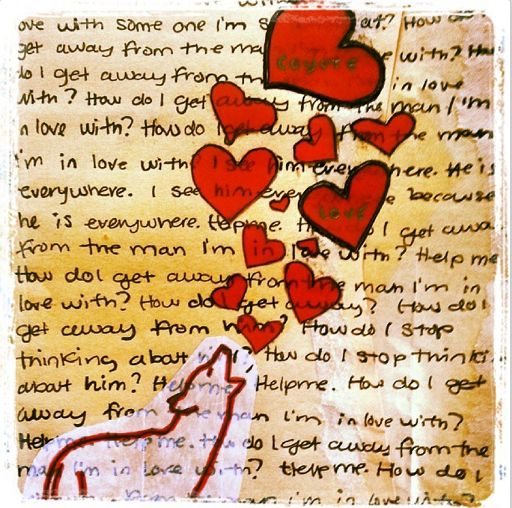 ove with some one I'm s at? How
get away from the ma e with? Ho
do I get away from th in love
with? How do I get away from the man I'm
n love with? How do I get away from the man
I'm in love with? I see him everywhere. He is
everywhere. I see him ever because
he is everywhere. Help me. H I get awa
from the man I'm in love with? Help me
How do I get away from the man I'm in
love with? How do I get away? How do I
get away from him? How do I stop
thinking about him? How do I stop thinki
about him? Help me. Help me. How do I get
away from the man I'm in love with?
Help me. Help me. How do I get away from the
man I'm in love with? Help me. How do I
from man I'm in love with?
Coyote
Love